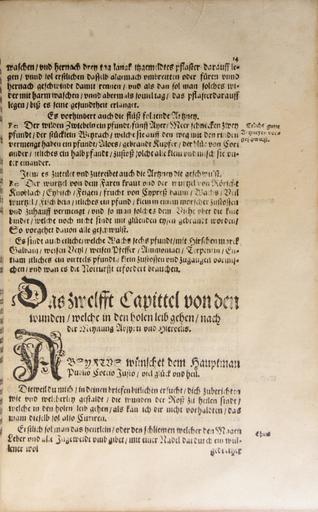 14
waschen / vnd hernach drey tag langk themeldtes pflaster darauff le-
gen / vnnd sol erstlichen dasselb allgemach vmbreitten oder füren vnnd
hernach geschwindt damit rennen / vnd als dan sol man solches wi-
der mit harm waschen / vnnd abermals souil tag / das pflaster darauff
legen / biß es seine gesundtheit erlanget.
Es vorhindert auch die flüß folgende Artzney.
Der wilden Zwiebeln ein pfundt, fünff Ayer / Meer schnecken zwey
pfundt / der stücklein Weyrach / welche sie auß den weg mit den
vermengt haben ein pfundt / Aloes / gebrandt Kupfer / der
ander / itliches ein halb pfundt / zustoß solche alle klein vnd misch sie vn-
ter einander.
Solche gute
Item es zuteilet vnd zutreibet auch die Artzney die geschwulst.
Der wurtzel von dem faren kraut vnnd der wurtzel von
Knobloch / Eybisch / Feigen / frucht von Cypreß baum / Wachs /
wurtzel / ein pfund / klein in einem morscher zustossen
vnd zuhauff vermengt / vnd so man solches dem Viehe ober die
bindet / welche noch nicht sindt mit glüenden eysen gebrandt worden /
So vorgehet dauon alle geschwulst.
Es sindt auch etliche / welche Wachs sechs pfundt / mit Hirschen marck
Galbani / weissen / weissen Pfeffer / Ammoniac / Terpentin /
itliches ein vierteils pfundt / klein zustossen vnd zugangen vormi-
schen / vnd wan es die Notturfft erfordert brauchen.
Das zwelfft Capittel von den
wunden / welche in den holen leib gehen / nach
der Meynung Absyrti vnd Hieroclis.
ABSYRTVS wünschet dem Hauptman
Iulio / viel glück vnd heil.
Dieweil du mich / in deinen brieffen bitlichen ersucht / dich zuberichten
wie vnd welcherley gestaldt / die wunden der Roß zu heilen sindt /
welche in den holen leib gehen / als kan ich dir nicht vorhaldten / das
man dieselb sol also Curiren.
Erstlich sol man das heutlein / oder den schliemen welcher den Magen
Leber vnd alle Ingeweidt vmbgibet / mit einer Nadel dardurch ein wul-
lener wol
gedreyter